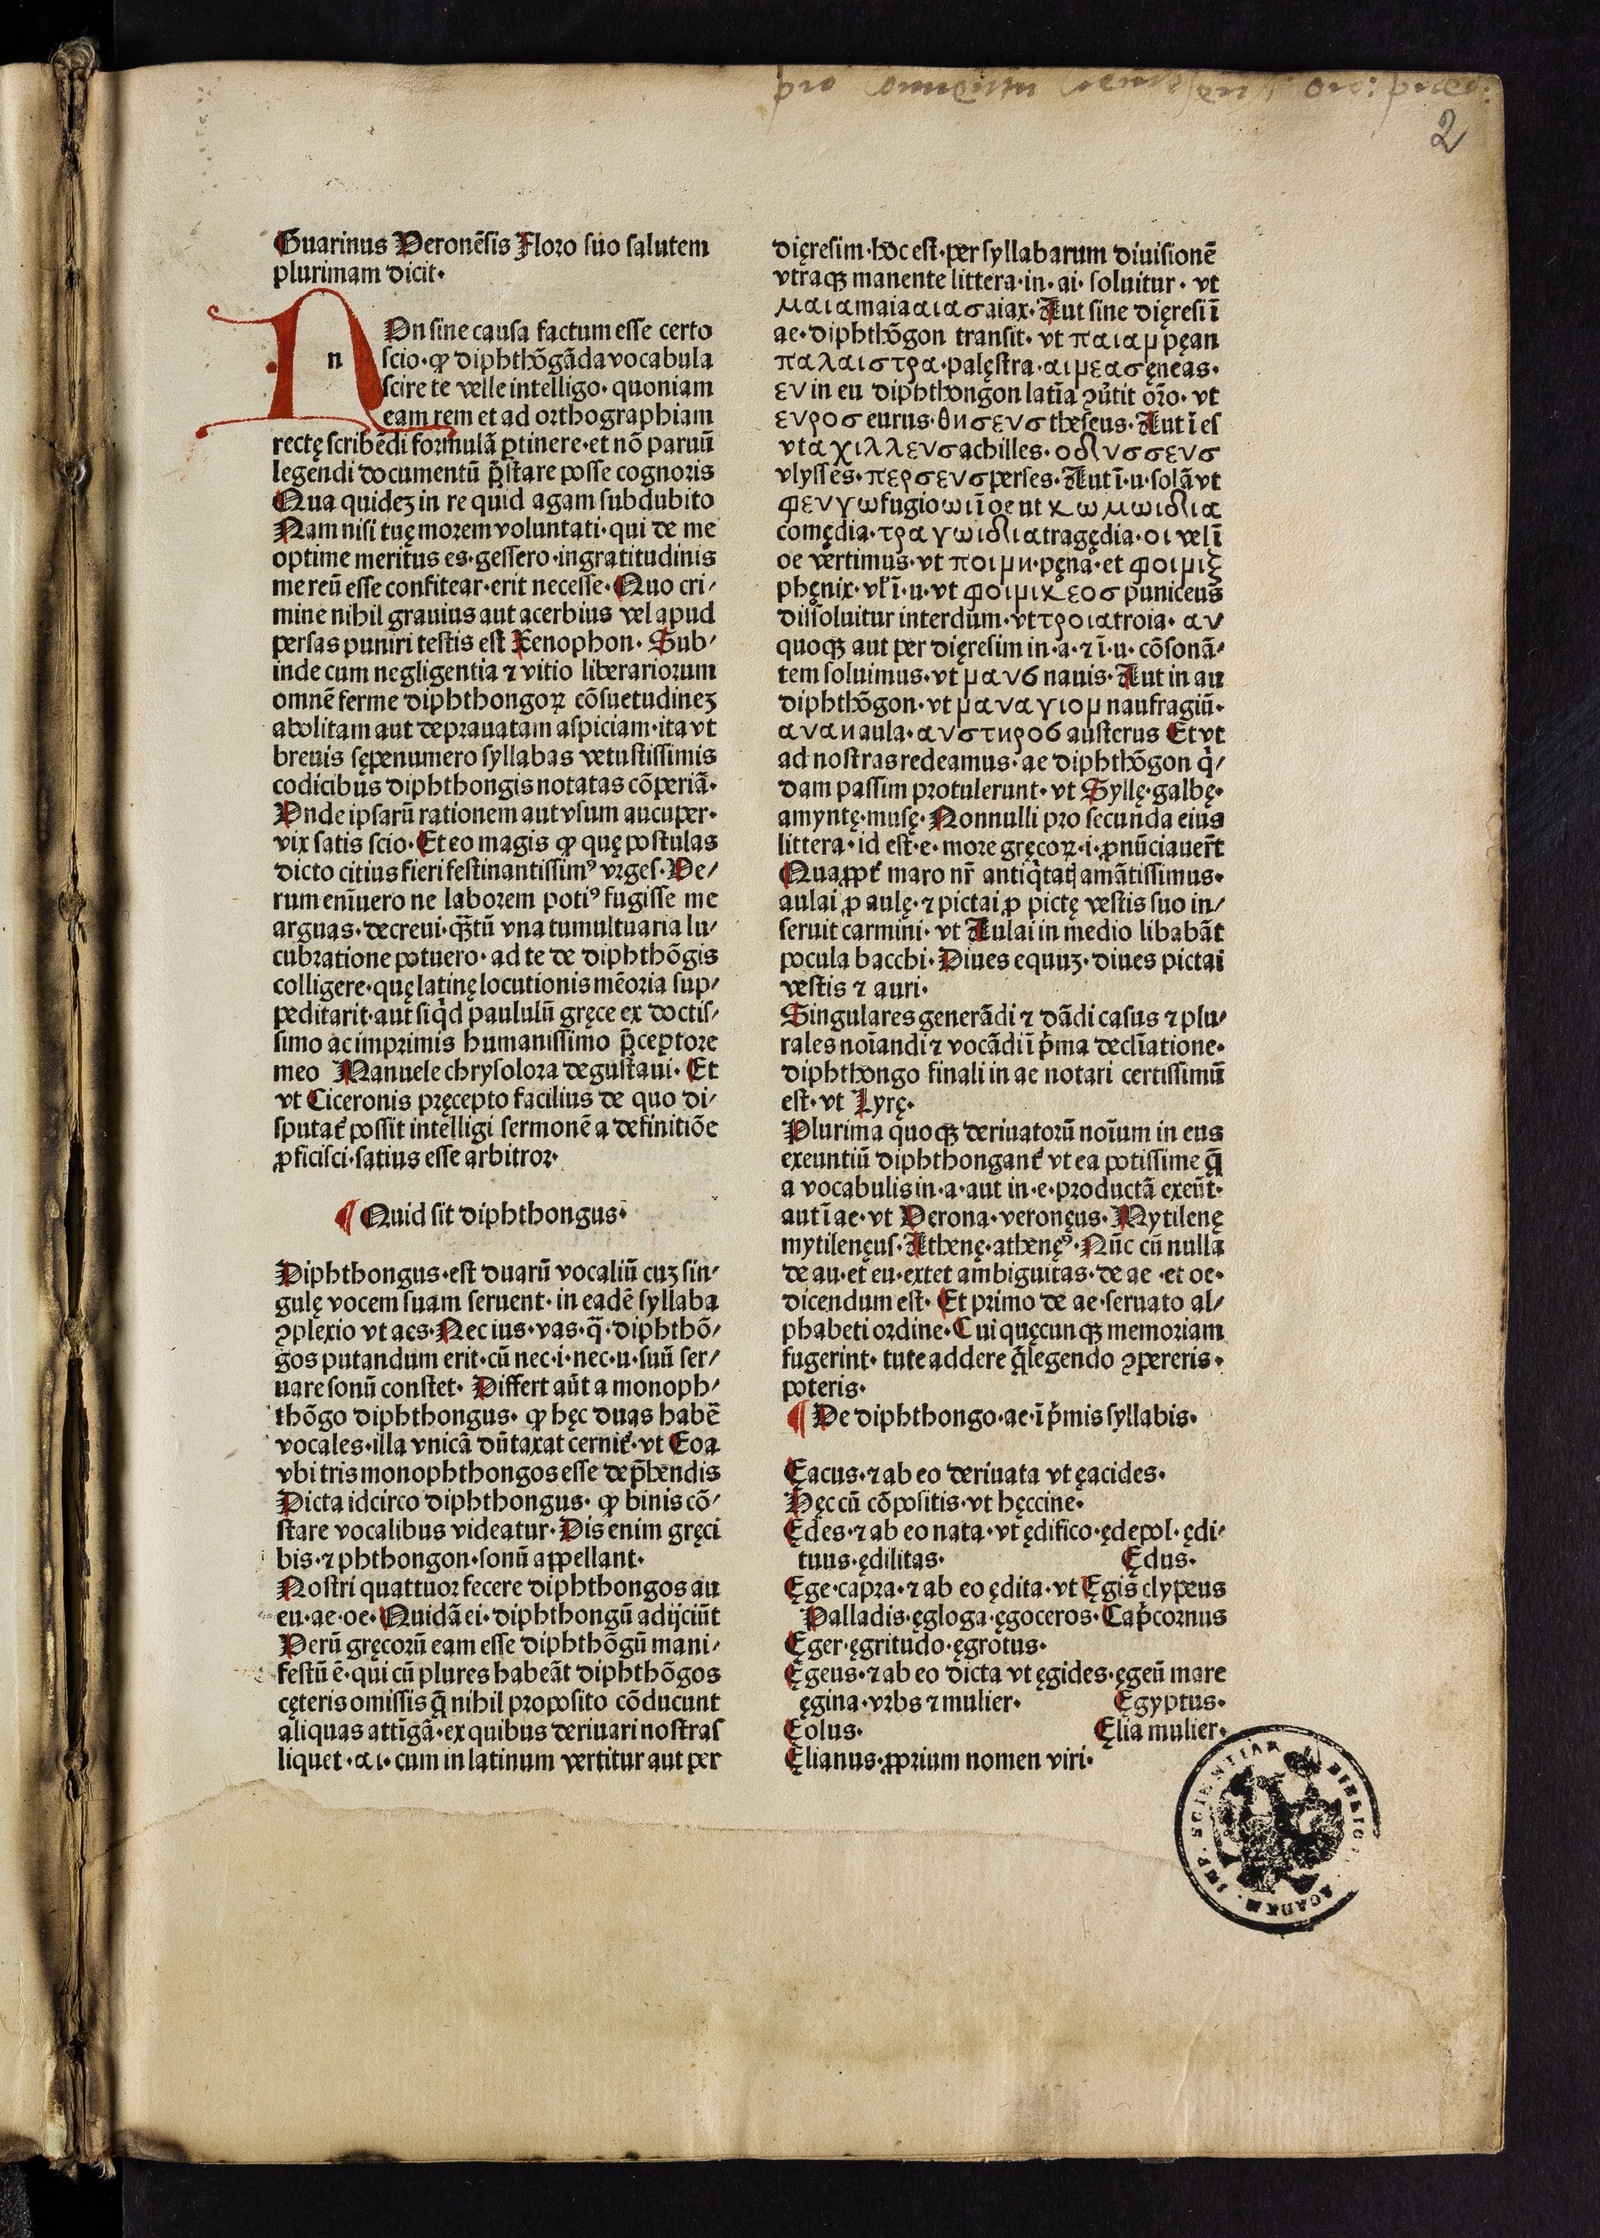 2
Guarinus Veronēsis Floro suo salutem
plurimam dicit·
n
On sine causa factum esse certo
scio· ꝙ diphthōgāda vocabula
scire te velle intelligo· quoniam
eam rem et ad orthographiam
rectę scribēdi formulā ꝑtinere· et nō paruū
legendi documentū p̄stare posse cognoris
Qua quideꝫ in re quid agam subdubito
Nam nisi tuę morem voluntati· qui de me
optime meritus es· gessero· ingratitudinis
me reū esse confitear· erit necesse· Quo cri/
mine nihil grauius aut acerbius vel apud
persas puniri testis est Xenophon· Sub/
inde cum negligentia ⁊ vitio liberariorum
omnē ferme diphthongoꝝ cōsuetudineꝫ
abolitam aut deprauatam aspiciam· ita vt
breuis sępenumero syllabas vetustissimis
codicibus diphthongis notatas cōperiā·
Vnde ipsarū rationem aut vsum aucuper·
vix satis scio· Et eo magis ꝙ quę postulas
dicto citius fieri festinantissimꝰ vrges· Ve/
rum enīuero ne laborem potiꝰ fugisse me
arguas· decreui· qȝtū vna tumultuaria lu/
cubratione potuero· ad te de diphthōgis
colligere· quę latinę locutionis mēoria sup/
peditarit· aut siqd paululū gręce ex doctis/
simo ac imprimis humanissimo p̄ceptore
meo Manuele chrysolora degustaui· Et
vt Ciceronis pręcepto facilius de quo di/
sputat᷑ possit intelligi sermonē a definitiōe
ꝓficisci· satius esse arbitror·
¶ Quid sit diphthongus·
Diphthongus· est duarū vocaliū cuꝫ sin/
gulę vocem suam seruent· in eadē syllaba
ꝯplexio vt aes· Nec ius· vas· q̄· diphthō/
gos putandum erit· cū nec· i· nec· u· suū ser/
uare sonū constet· Differt aūt a monoph/
thōgo diphthongus· ꝙ hęc duas habē
vocales· illa vnicā dūtaxat cernit᷑· vt Eoa
vbi tris monophthongos esse dep̄hendis
Dicta idcirco diphthongus· ꝙ binis cō/
stare vocalibus videatur· Dis enim gręci
bis· ⁊ phthongon· sonū appellant·
Nostri quattuor fecere diphthongos au
eu· ae· oe· Quidā ei· diphthongū adijciūt
Verū gręcorū eam esse diphthōgū mani/
festū ē· qui cū plures habeāt diphthōgos
cęteris omissis q̄ nihil proposito cōducunt
aliquas attīgā· ex quibus deriuari nostras
liquet· αι· cum in latinum vertitur aut per
dięresim· hoc est· per syllabarum diuisionē
vtraqꝫ manente littera· in· ai· soluitur· vt
μαια maia αιασ aiax· Aut sine dięresi ī
ae· diphthōgon transit· vt παιαμ pęan
παλαιστρα· palęstra· αιμεασ ęneas·
ευ in eu diphthongon latīa ꝯūtit oro· vt
ευροσ eurus· θησευσ theseus· Aut ī es
vt αχιλλευσ achilles· οδυσσευσ
vlysses· περσευσ perses· Aut ī· u· solā vt
φευγω fugio ωι ī oe ut κωμωιδια
comędia· τραγωιδια tragędia· οι vel ī
oe vertimus· vt ποιμη· pęna· et φοιμιξ
phęnix· vl ī· u· vt φοιμικεοσ puniceus
dissoluitur interdum· vt τροια troia· αυ
quoqꝫ aut per dięresim in· a· ⁊ ī· u· cōsonā/
tem soluimus· vt μαυσ nauis· Aut in au
diphthōgon· vt μαυαγιομ naufragiū·
αυλη aula· αυστηροσ austerus Et vt
ad nostras redeamus· ae diphthōgon q/
dam passim protulerunt· vt Syllę· galbę·
amyntę· musę· Nonnulli pro secunda eius
littera· id est· e· more gręcoꝝ· i· ꝓnūciauert
Quapp̄t maro nr̄ antiqtatꝭ amātissimus·
aulai ꝓ aulę· ⁊ pictai ꝓ pictę vestis suo in/
seruit carmini· vt Aulai in medio libabāt
pocula bacchi· Diues equuꝫ· diues pictai
vestis ⁊ auri·
Singulares generādi ⁊ dādi casus ⁊ plu/
rales noīandi ⁊ vocādi ī pma declīatione·
diphthongo finali in ae notari certissimū
est· vt Lyrę·
Plurima quoqꝫ deriuatorū noīum in eus
exeuntiū diphthongant᷑ vt ea potissime q̄
a vocabulis in· a· aut in· e· productā exeūt·
aut ī ae· vt Verona· veronęus· Mytilenę
mytilenęus· Athenę· athenęꝰ· Nūc cū nulla
de au· et eu· extet ambiguitas· de ae· et oe·
dicendum est· Et primo de ae· seruato al/
phabeti ordine· Cui quęcunqꝫ memoriam
fugerint· tute addere q̄ legendo ꝯpereris·
poteris·
¶ De diphthongo· ae· ī pmis syllabis·
Eacus· ⁊ ab eo deriuata vt ęacides·
Hęc cū cōpositis· vt hęccine·
Edes· ⁊ ab eo nata· vt ędifico· ędepol· ędi/
tuus· ędilitas· Ędus·
Ęge· capra· ⁊ ab eo ędita· vt Ęgis clypeus
Palladis· ęgloga· ęgoceros· Capcornus
Ęger· ęgritudo· ęgrotus·
Ęgeus· ⁊ ab eo dicta vt ęgides· ęgeū mare
ęgina· vrbs ⁊ mulier· Ęgyptus·
Eolus· Ęlia mulier·
Ęlianus· ꝓprium nomen viri·